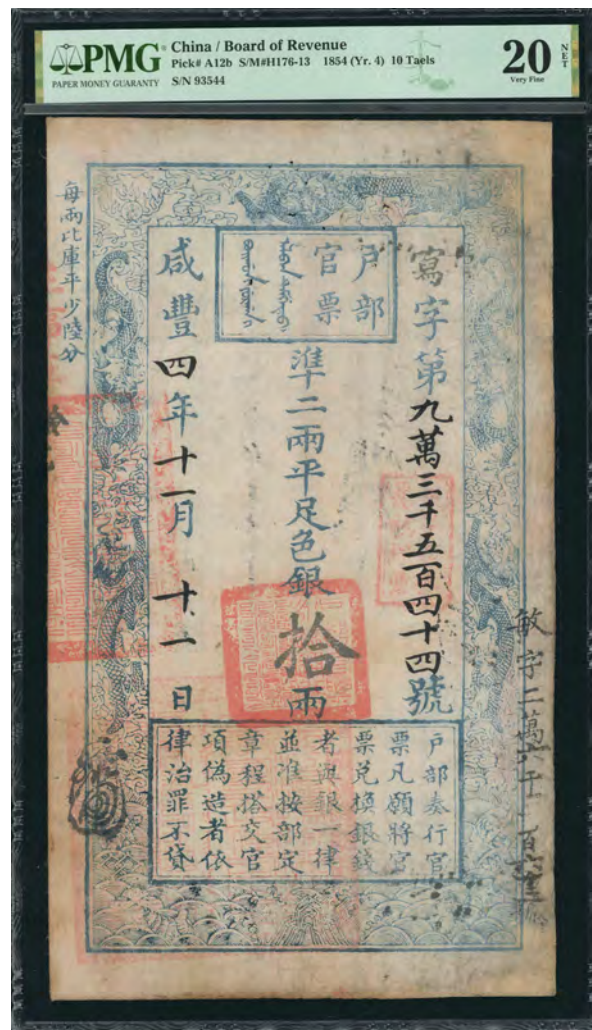 PMG
PAPER MONEY GUARANTY
China / Board of Revenue
Pick# A12b S/M#H176-13 1854 (Yr. 4) 10 Taels
S/N 93544
20
NET
Very Fine
寫字第九萬三千五百四十四號
戶部
官票
準二兩平足色銀拾兩
咸豐四年十一月十一日
每兩比庫平少陸分
戶部奏行官
票凡願將官
票兌換銀錢
者與銀一律
並準按部定
章程搭交官
項偽造者依
律治罪不貸
敏字二萬六千一百